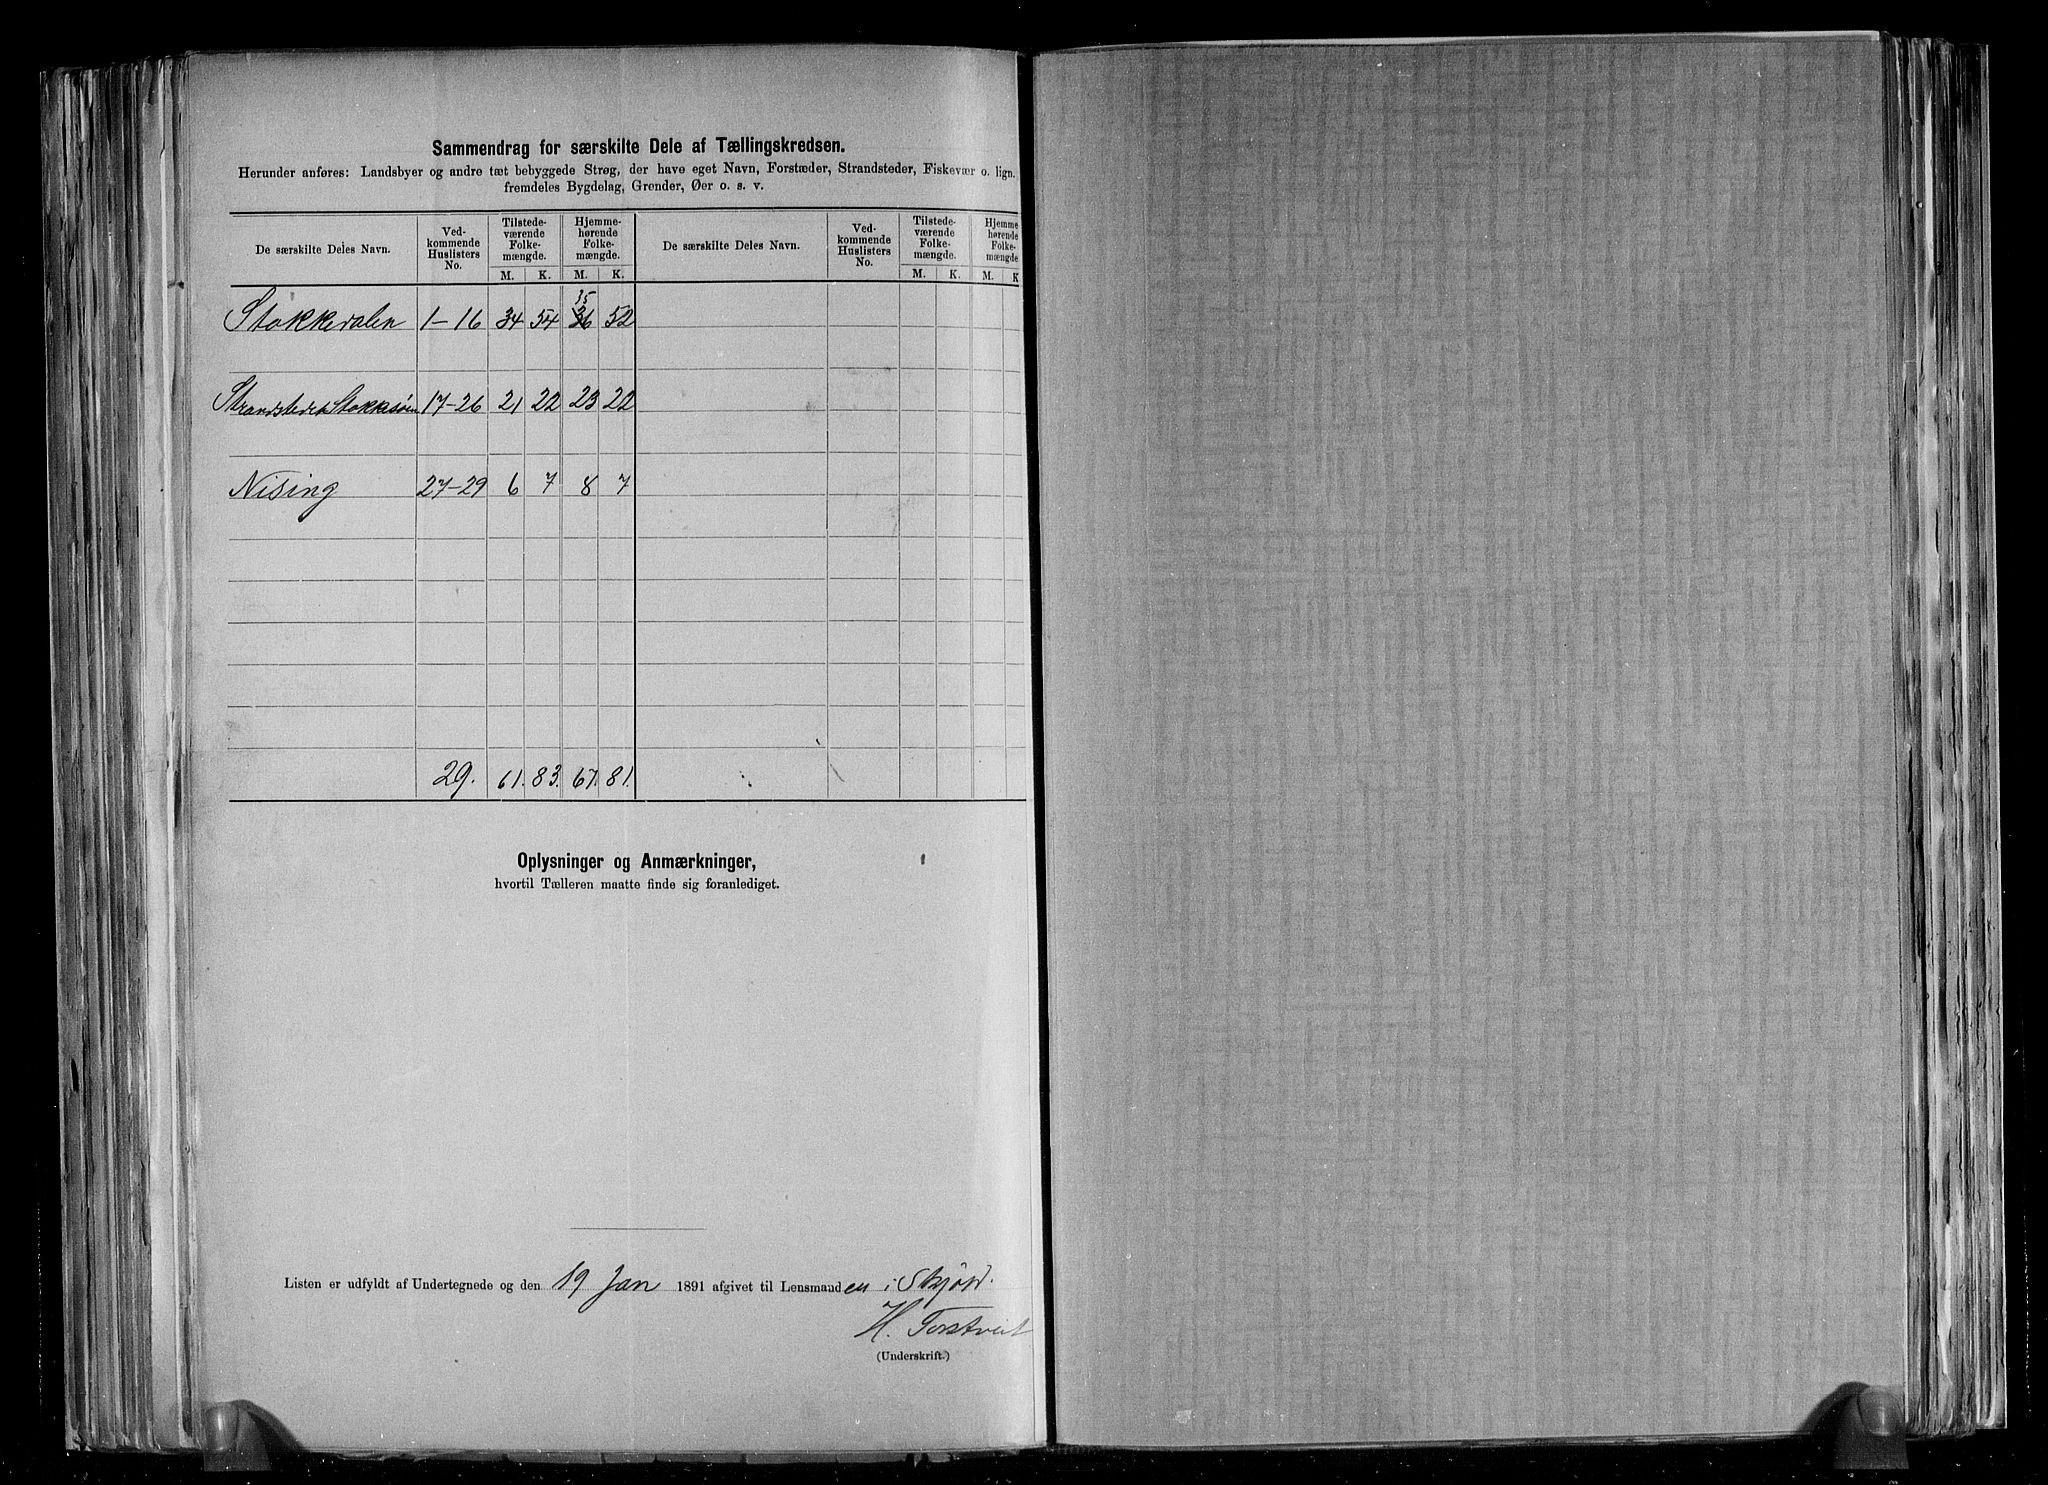 Sammendrag for særskilte Dele af Tællingskredsen.
Herunder anføres: Landsbyer og andre tæt bebyggede Strøg, der have eget Navn, Forstæder, Strandsteder, Fiskevær o. lign.
fremdeles Bygdelag, Grender, Øer o. s. v.
De særskilte Deles Navn. Ved-kommende Huslisters No. Tilstede-værende Folke-mængde. Hjemme-hørende Folke-mængde. De særskilte Deles Navn. Ved-kommende Huslisters No. Tilstede-værende Folke-mængde. Hjemme hørende Folke-mængde
M. K. M. K. M. K. M. K
35
Stokkedalen 1-16 34 54 36 52
Strandstedet 17-26 21 22 23 22
Nising 27-29 6 7 8 7
29. 61. 83. 67. 81.
Oplysninger og Anmærkninger,
hvortil Tælleren maatte finde sig foranlediget.
Listen er udfyldt af Undertegnede og den 19 Jan 1891 afgivet til Lensmanden i Skjold.
H. Torstveit
(Underskrift.)